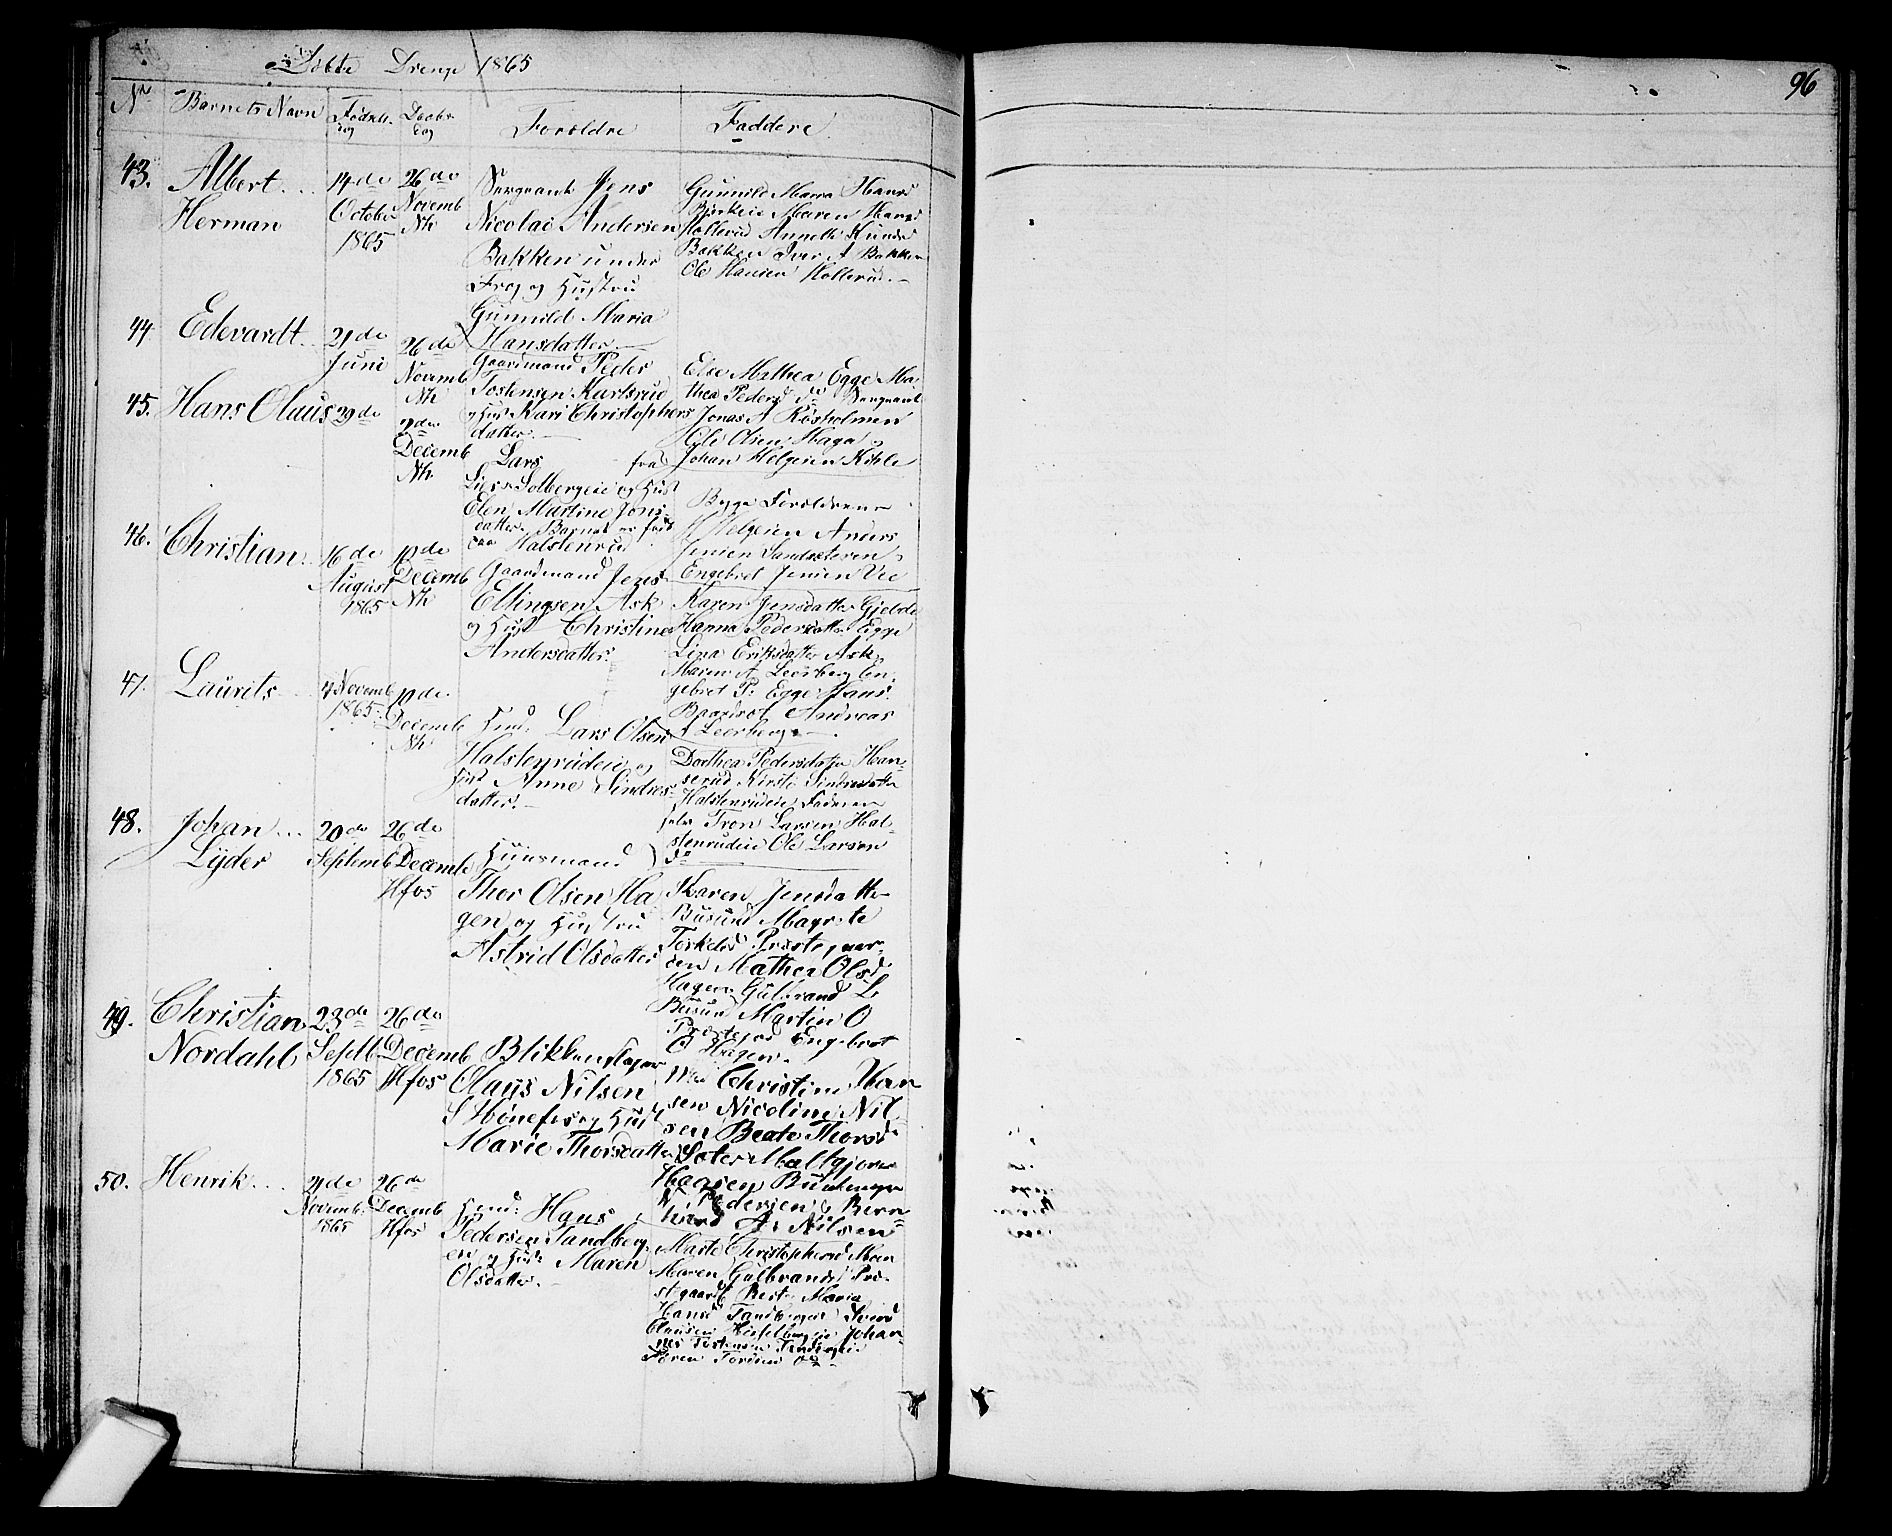 Døbte Drenge 1865
96
No Barnets Navn Fødsels- dag Daabs- dag Forældre Faddere
43. Albert Herman
14de October 1865
26de Novemb Nh
Sergeant Jens
Nicolai Andersen
Bakken under
Frog og Hustru
Gunnild Maria
Hansdatter.
Gunnild Maria Hansd
Maren Hansd
Kollerud Annette Knudsd
Bakken Iver A Bakken
Ole Hansen Kollerud.
44 Edevardt
21de Juni
26de Novemb Nh
Gaardmand Peder
Tostensen Karlsrud
og Hust Kari Christophers
datter.
Else Mathea Egge Ma-
thea Pedersd do Sergeant
Jonas A Røsholmen
Ole Olsen Haga
Johan Helgesen Kihle
45. Hans Olaus
29de
2den Decemb Nh
Lars fra
Lier Solbergeie og Hust
Elen Martine Jons-
datter. Barnet er født
paa Halstenrud
Begge Forældrene
H Helgesen Anders
Jensen Sandsæteren
Engebret Jensen Vee
46. Christian
16de August 1865
10de Decemb Nh
Gaardmand Jens
Ellingsen Ask
og Hust Christine
Andersdatter.
Karen Jensdatter Gjelde
Hanna Pedersdatter Egge
Lina Eriksdatter Ask
Maren A Leerberg En-
gebret P. Egge Hans
Andreas
A Leerberg.
47. Laurits
4 Novemb 1865
10de Decemb Nh
Husmd: Lars Olsen
Halstenrudeie og
Hust Anne Sindres-
datter.
Dorthea Pedersdatter Han-
serud Kirsti Sindresdatter
Halstenrudeie Faderen
selv Tron Larsen Hal-
stenrudeie Ole Larsen
do
48. Johan Lyder
20de Septemb
26de Decemb Hfos
Huusmand
Thor Olsen Ha
gen og Hustru
Astrid Olsdatter
Karen Jensdatter
Busund Magrete
Torkelsd Præstegaar-
den Mathea Olsd
Hagen Gulbrand L
Busun Martin O
Præstegrd Engebret
O Hagen.
49. Christian Nordahl
23de Septb 1865
26de Decemb Hfos
Blikkenslager
Olaus Nilsen
S Hønefos og Hust
Marie Thorsdatter
Christine Han
sen Nicoline Nil
sen Beate Thorsd
Sæter
Haagen
Pedersen Bern-
hard A. Nilsen
50. Henrik
21de Novemb. 1865
26de Decemb Hfos
Husmd: Hans
Pedersen Tandberg-
en og Hust Maren
Olsdatter.
Marte Christophersd Moen
Maren Gulbrandsd Præ-
stgaard Berte Maria
Hansd Tandbergeie Svend
Clausen Johan-
nes Tostensen
Søren